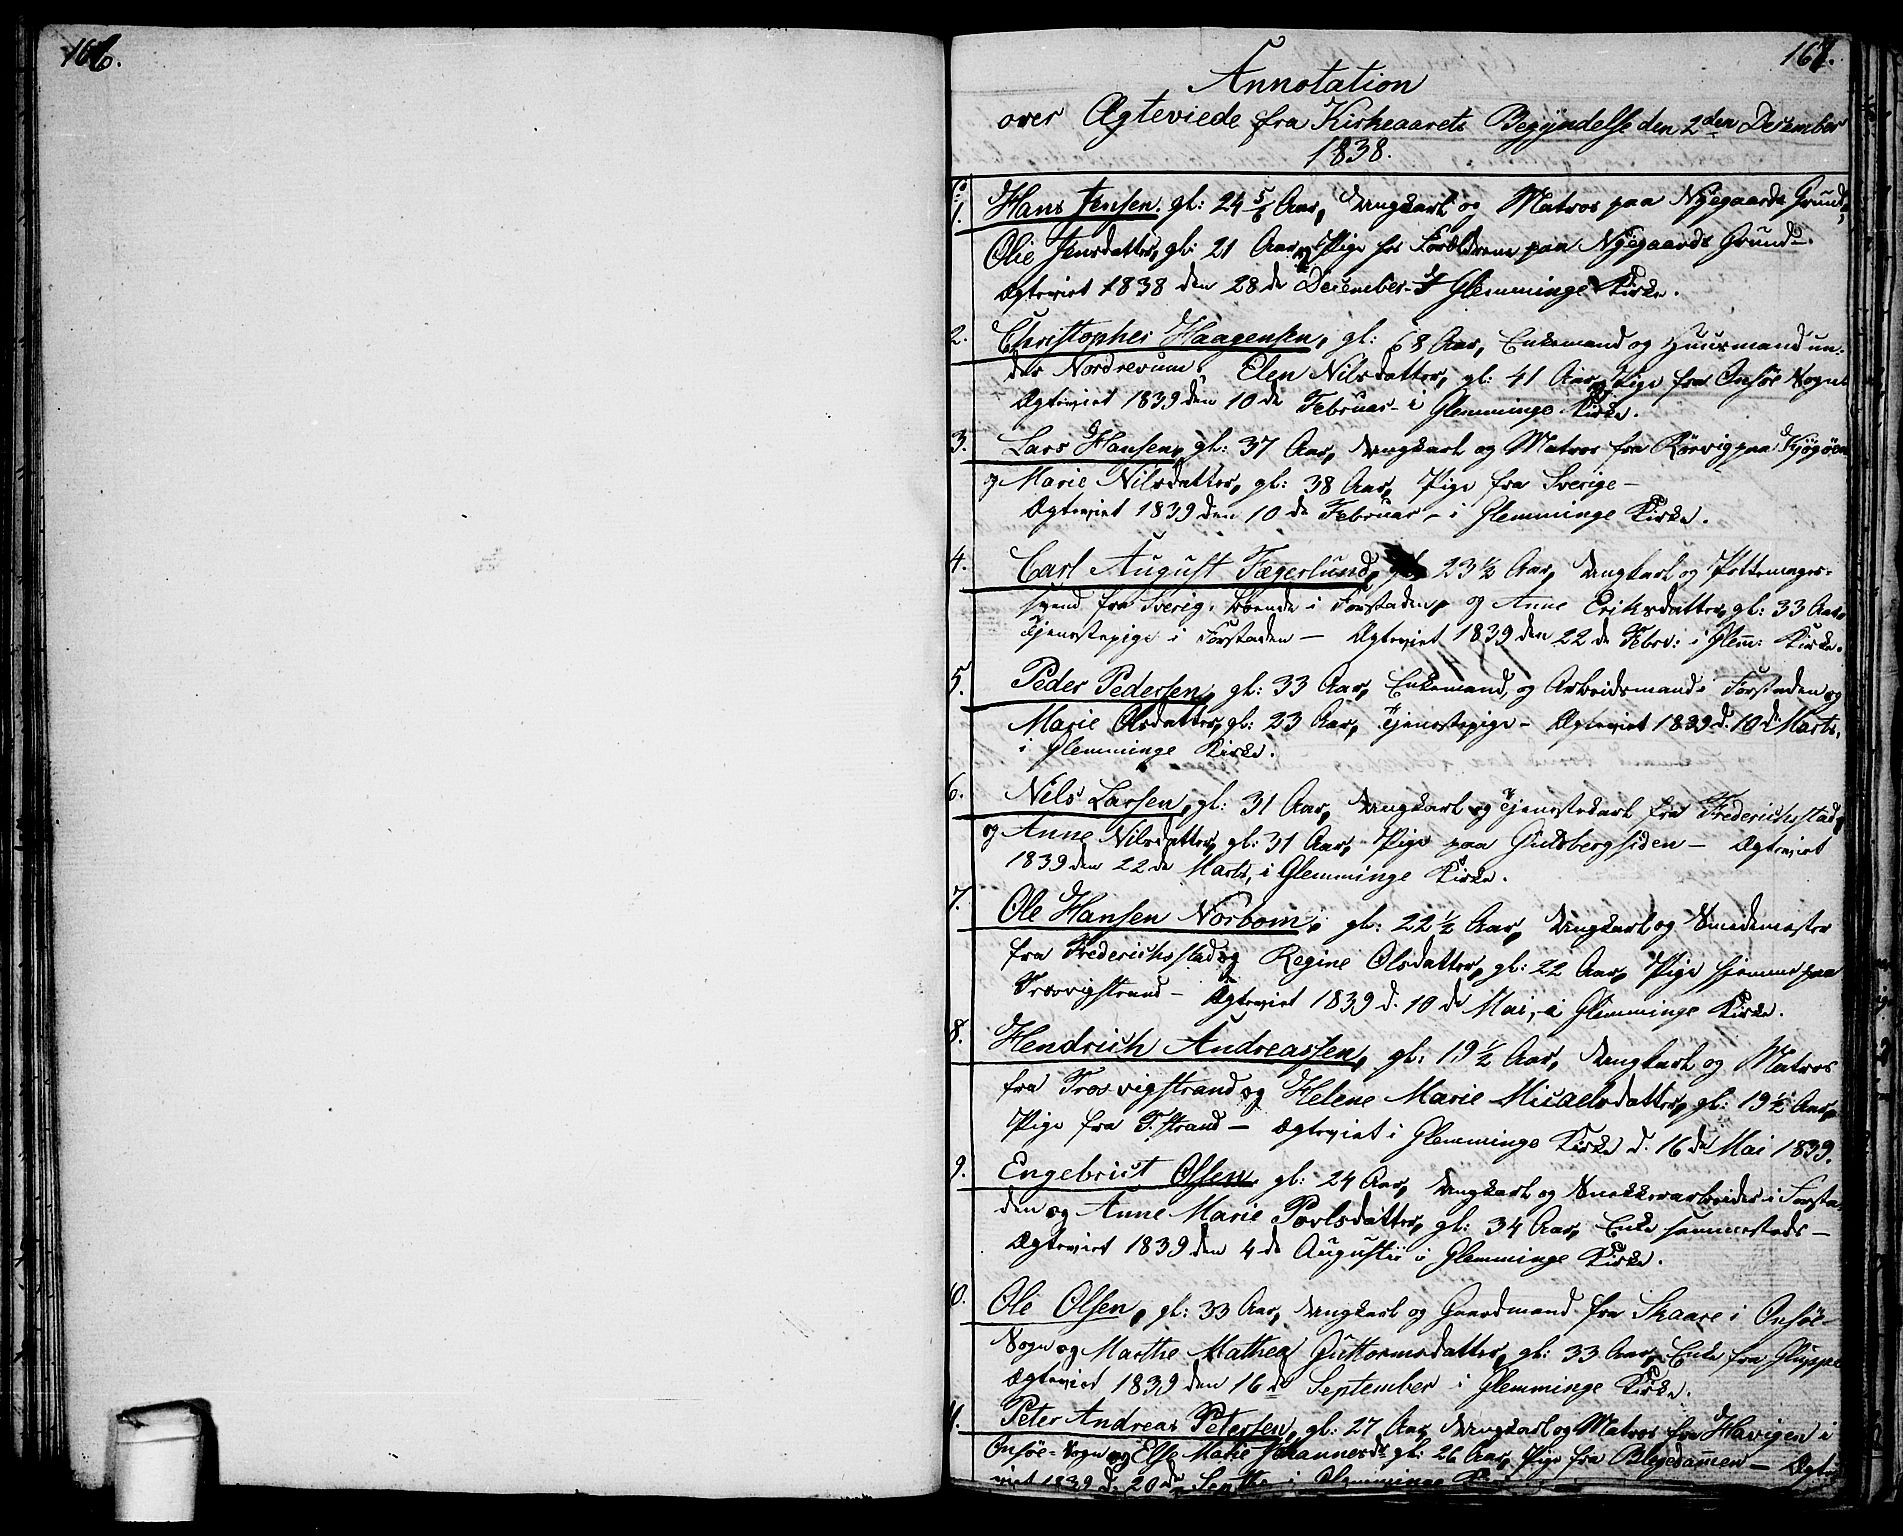 166.
167.
Annotation
over Ægteviede fra Kirkeaarets Begyndelse den 2den December
1838.
1. Hans Jensen, gl: 24 5/6 Aar, Ungkarl og Matros paa Nygaards Grund,
Olie Jensdatter, gl: 21 Aar, Pige hos Forældrene paa Nygaards Grund.
Ægteviet 1838 den 28de December i Glemminge Kirke.
2. Christopher Haagensen, gl: 68 Aar, Enkemand og Huusmand un-
der Nordrevum, Elen Nilsdatter, gl: 41 Aar, Pige fra Onsöe Sogn
Ægteviet 1839 den 10de Februar i Glemminge Kirke.
3. Lars Hansen, gl: 37 Aar, Ungkarl og Matros fra Rörvig paa Kjøgöen
og Marie Nilsdatter, gl: 38 Aar, Pige fra Sverige –
Ægteviet 1839 den 10de Februar – i Glemminge Kirke.
4. Carl August Fægerlund, gl: 23 ½ Aar, Ungkarl og Pottemager-
svend fra Sverig, boende i Forstaden, og Anne Eriksdatter, gl: 33 Aar,
Tjenestepige i Forstaden – Ægteviet 1839 den 22de Febr: i Glem: Kirke.
5. Peder Pedersen, gl: 33 Aar, Enkemand, og Arbeidsmand i Forstaden og
Marie Olsdatter, gl: 23 Aar, Tjenestepige – Ægteviet 1839 d. 10de Marts,
i Glemminge Kirke.
6. Nils Larsen, gl: 31 Aar, Ungkarl og Tjenestekarl fra Frederichsstad,
og Anne Nilsdatter, gl: 31 Aar, Pige paa Guldbergsiden – Ægteviet
1839 den 22de Marts, i Glemminge Kirke.
7. Ole Hansen Norbom, gl: 22 ½ Aar, Ungkarl og Smedemester
fra Frederichsstad og Regine Olsdatter, gl: 22 Aar, Pige hjemme paa
Trosvigstrand – Ægteviet 1839 d. 10de Mai, i Glemminge Kirke.
8. Hendrich Andreassen, gl: 19 ½ Aar, Ungkarl og Matros
fra Trosvigstrand og Helene Marie Micaelsdatter, gl: 19 ½ Aar,
Pige fra T.strand – Ægteviet i Glemminge Kirke d. 16de Mai 1839.
9. Engebrict Olsen, gl: 24 Aar, Ungkarl og Snekkerarbeider i Forsta-
den og Anne Marie Povlsdatter, gl: 34 Aar, Enke sammesteds –
Ægteviet 1839 den 4de Augustii i Glemminge Kirke.
0. Ole Olsen, gl: 33 Aar, Ungkarl og Gaardmand fra Skaare i Onsöe
Sogn og Marthe Mathea Guttormsdatter, gl: 33 Aar, Enke fra Gluppe
Ægteviet 1839 den 16de September i Glemminge Kirke.
1. Peter Andreas Petersen, gl: 27 Aar, Ungkarl og Matros fra Havigen i
Onsöe-Sogn og Else Marie Johannesd: gl: 26 Aar, Pige fra Blegedammen – Ægte
viet 1839 d. 20de Septbr i Glemminge